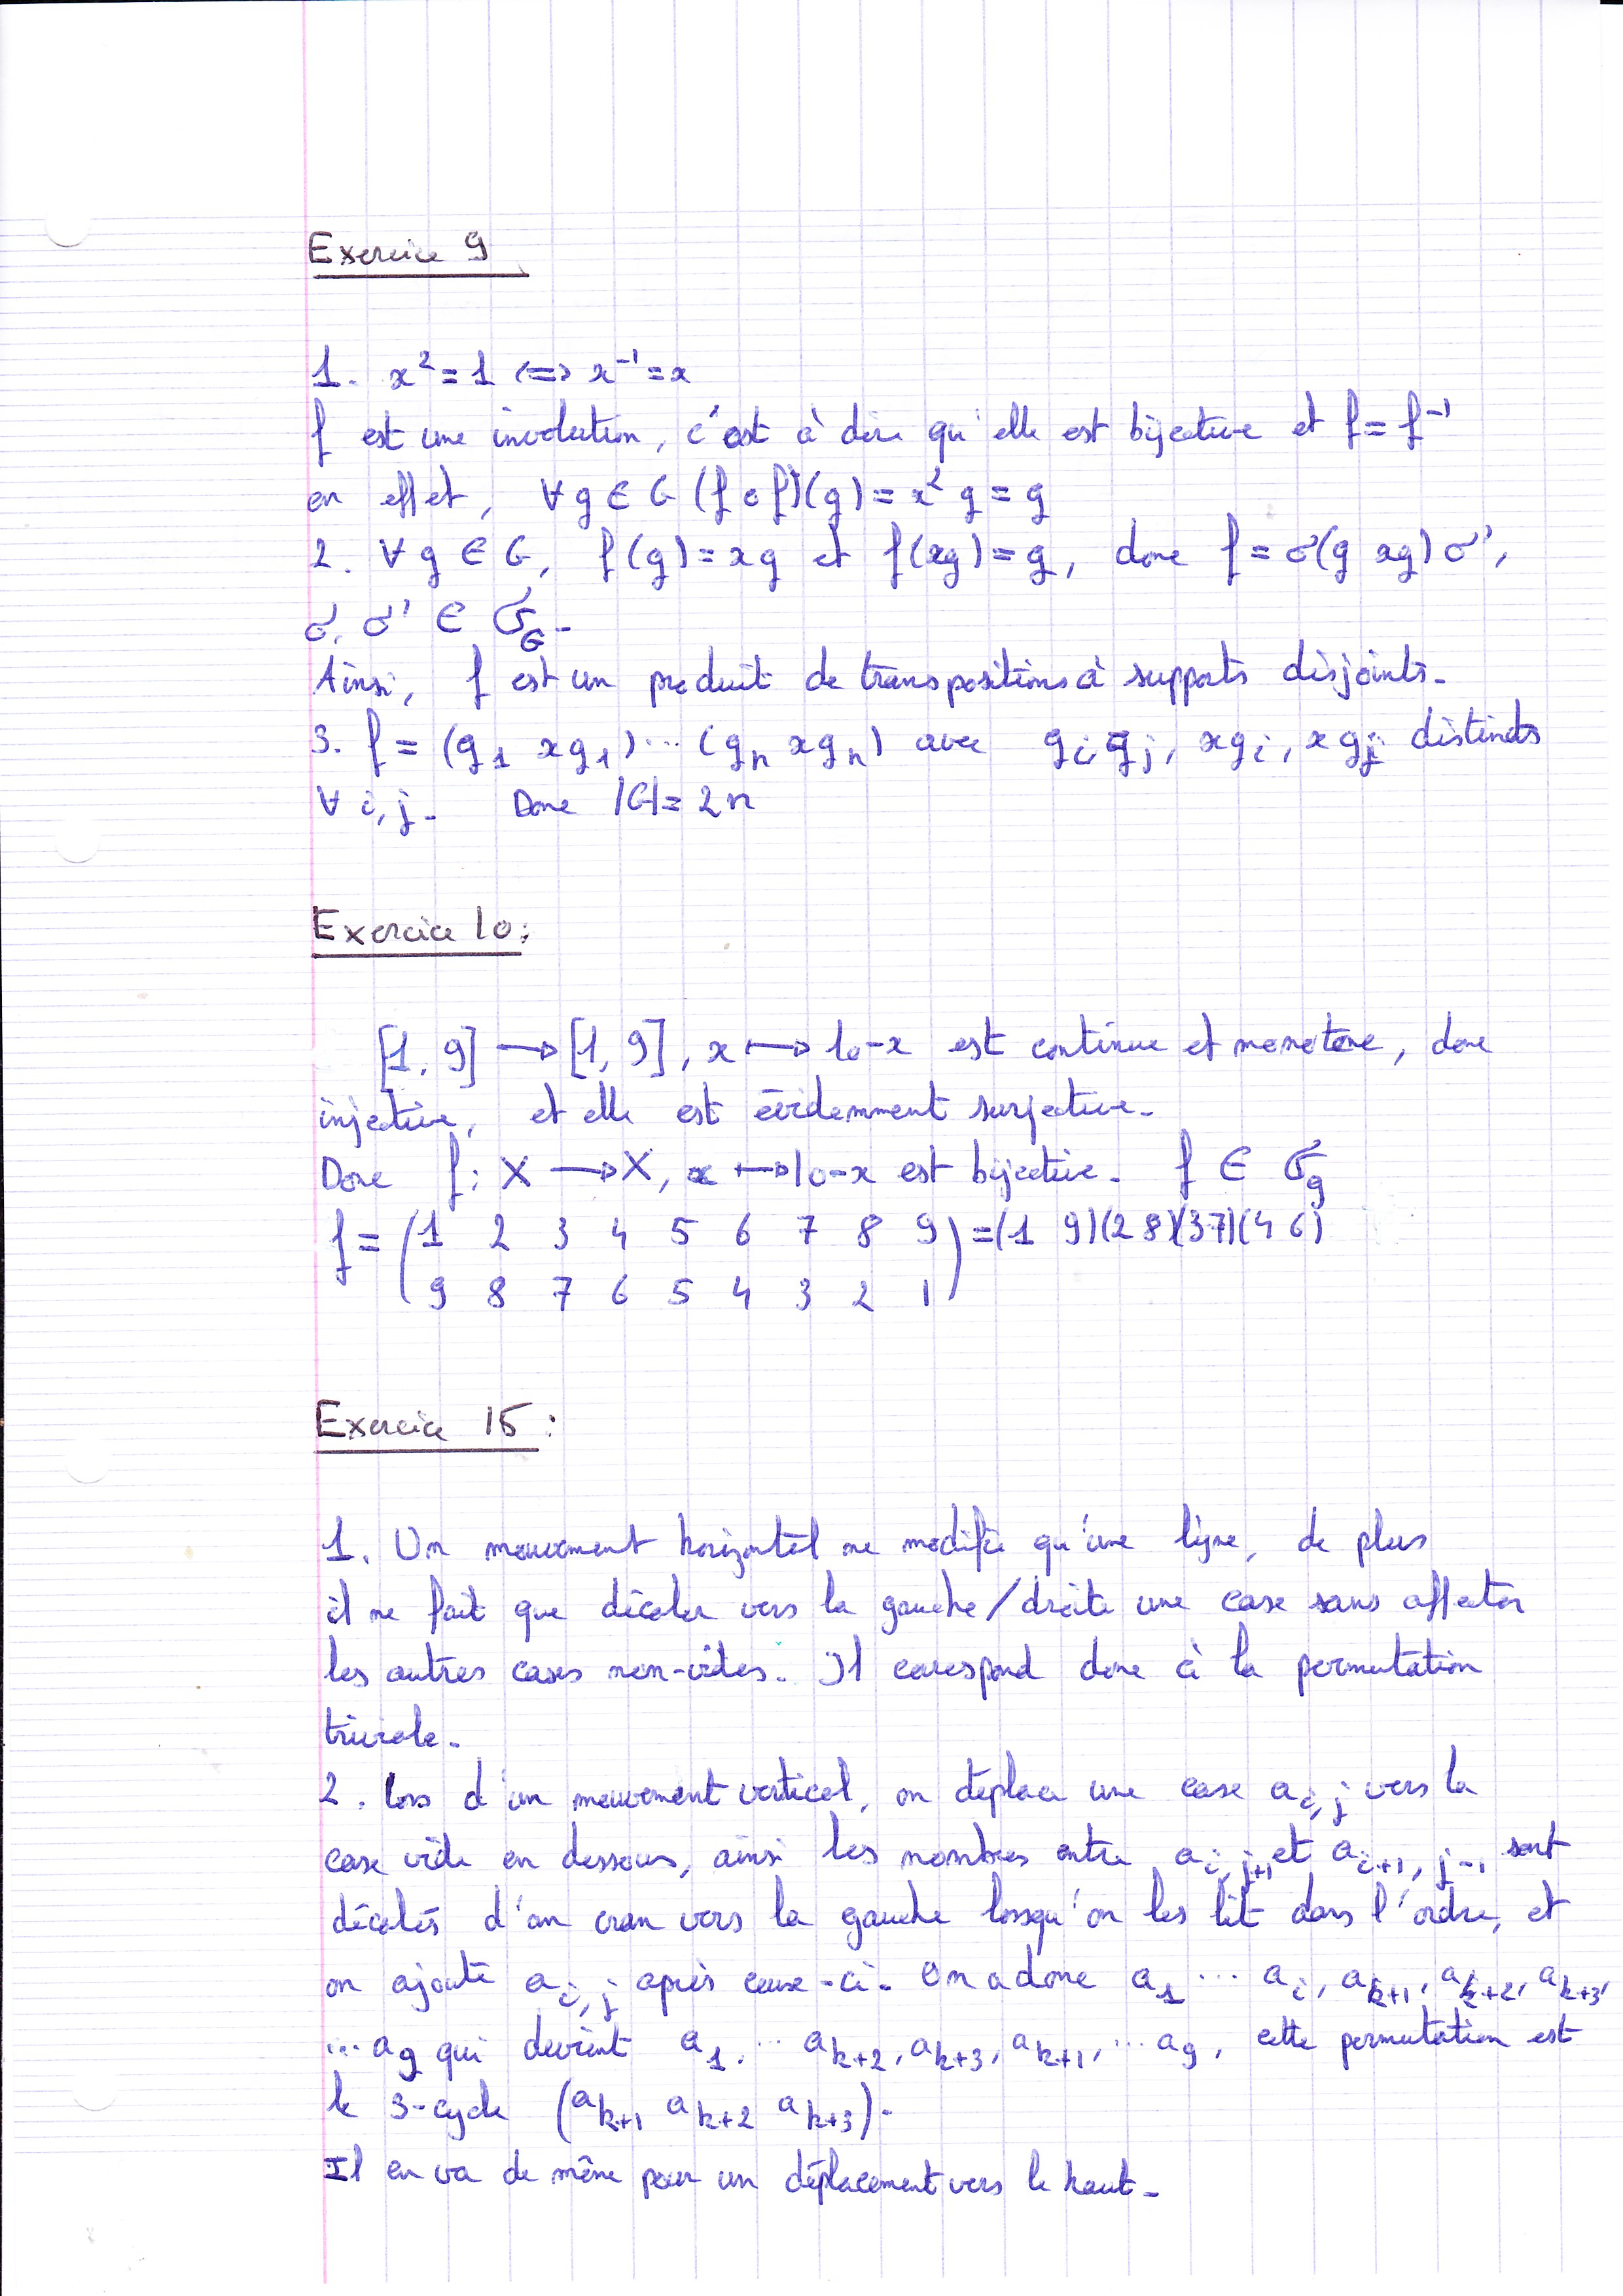 Exercice 9
1. x² = 1 <=> x⁻¹ = x
f est une involution, c'est à dire qu'elle est bijective et f = f⁻¹
en effet, ∀ g ∈ G (f o f)(g) = x² g = g
2. ∀ g ∈ G, f(g) = xg et f(xg) = g, donc f = σ(g xg) σ',
σ, σ' ∈ 𝔖_G.
Ainsi, f est un produit de transpositions à supports disjoints.
3. f = (g₁ xg₁) ... (gₙ xgₙ) avec g_i, g_j, xg_i, xg_j distincts
∀ i, j. Donc |G| = 2n
Exercice 10:
[1, 9] → [1, 9], x ↦ 10-x est continue et monotone, donc
injective, et elle est évidemment surjective.
Donc f: X → X, x ↦ 10-x est bijective. f ∈ 𝔖₉
f = (1 2 3 4 5 6 7 8 9) = (1 9)(2 8)(3 7)(4 6)
9 8 7 6 5 4 3 2 1
Exercice 15:
1. Un mouvement horizontal ne modifie qu'une ligne, de plus
il ne fait que décaler vers la gauche/droite une case sans affecter
les autres cases non-vides. Il correspond donc à la permutation
triviale.
2. Lors d'un mouvement vertical, on déplace une case a_{i,j} vers la
case vide en dessous, ainsi les nombres entre a_{i,j+1} et a_{i+1,j-1} sont
décalés d'un cran vers la gauche lorsqu'on les lit dans l'ordre, et
on ajoute a_{i,j} après ceux-ci. On a donc a₁ ... a_i, a_{k+1}, a_{k+2}, a_{k+3},
... a₉ qui devient a₁, ... a_{k+2}, a_{k+3}, a_{k+1}, ... a₉, cette permutation est
le 3-cycle (a_{k+1} a_{k+2} a_{k+3}).
Il en va de même pour un déplacement vers le haut.